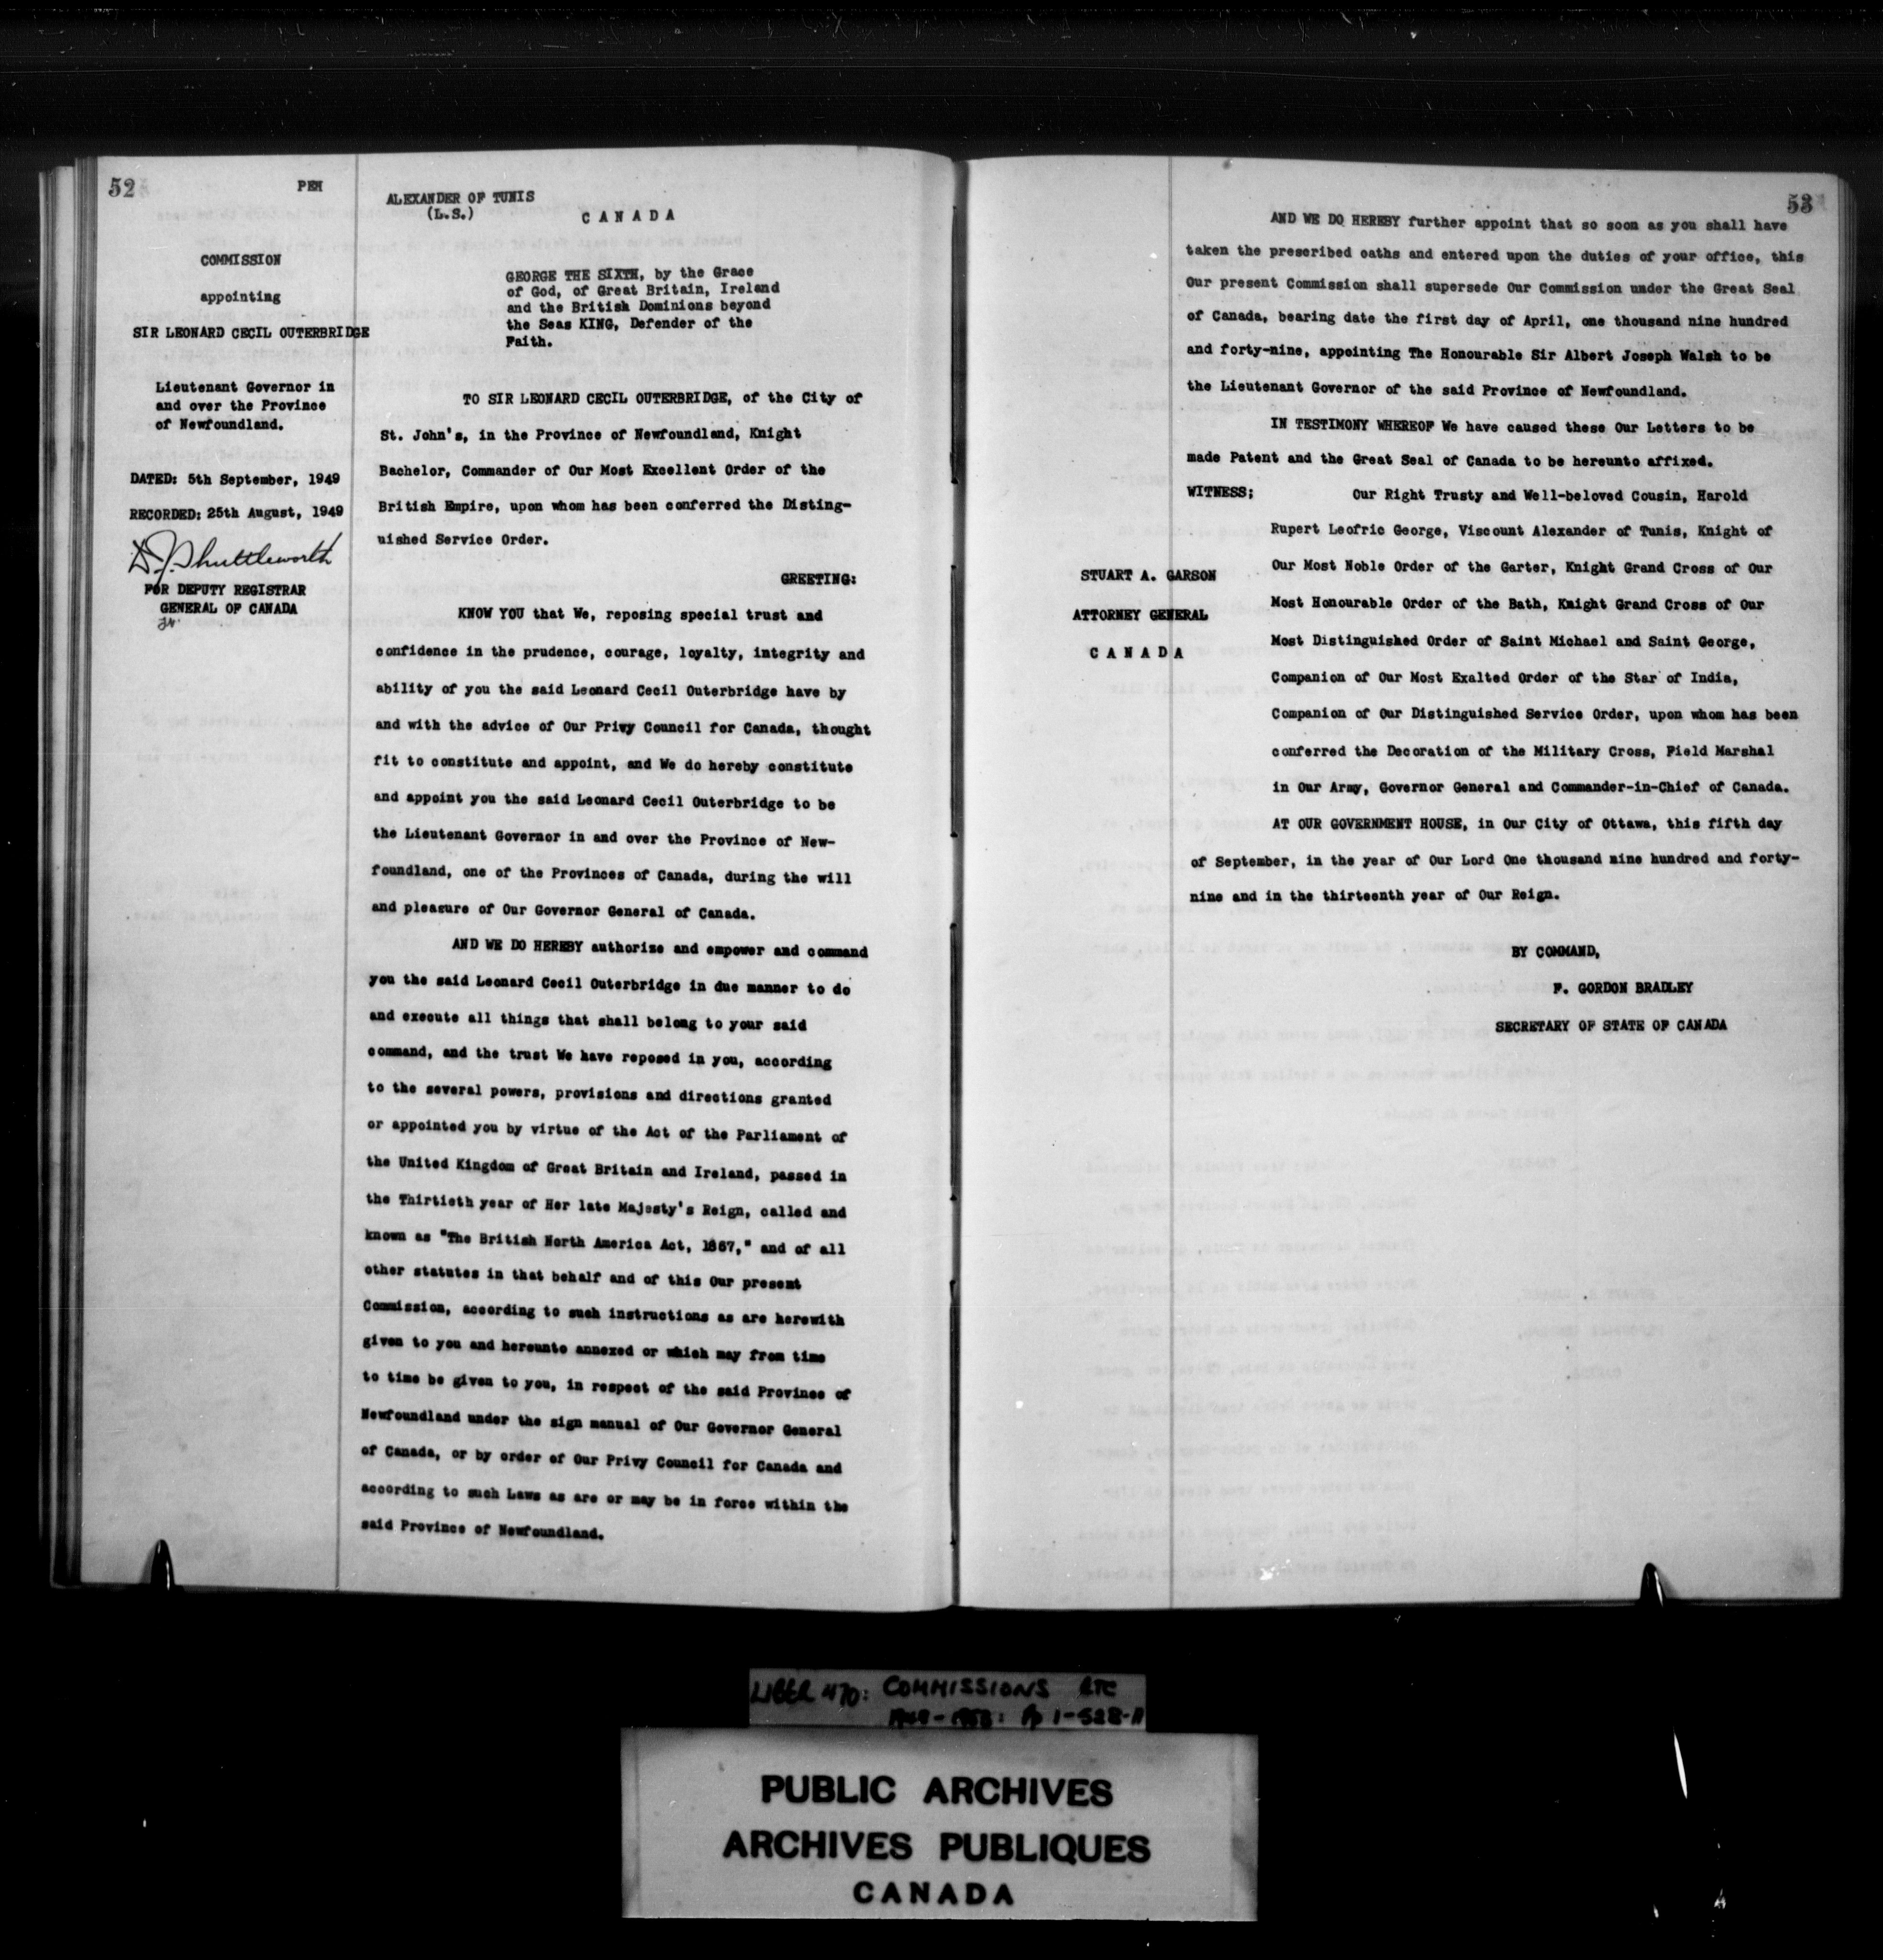 52
PEM
COMMISSION
appointing
SIR LEONARD CECIL OUTERBRIDGE
Lieutenant Governor in
and over the Province
of Newfoundland.
DATED: 5th September, 1949
RECORDED: 25th August, 1949
D.J. Shuttleworth
FOR DEPUTY REGISTRAR
GENERAL OF CANADA
ALEXANDER OF TUNIS
(L.S.)
C A N A D A
GEORGE THE SIXTH, by the Grace
of God, of Great Britain, Ireland
and the British Dominions beyond
the Seas KING, Defender of the
Faith.
TO SIR LEONARD CECIL OUTERBRIDGE, of the City of
St. John's, in the Province of Newfoundland, Knight
Bachelor, Commander of Our Most Excellent Order of the
British Empire, upon whom has been conferred the Disting-
uished Service Order.
GREETING:
KNOW YOU that We, reposing special trust and
confidence in the prudence, courage, loyalty, integrity and
ability of you the said Leonard Cecil Outerbridge have by
and with the advice of Our Privy Council for Canada, thought
fit to constitute and appoint, and We do hereby constitute
and appoint you the said Leonard Cecil Outerbridge to be
the Lieutenant Governor in and over the Province of New-
foundland, one of the Provinces of Canada, during the will
and pleasure of Our Governor General of Canada.
AND WE DO HEREBY authorize and empower and command
you the said Leonard Cecil Outerbridge in due manner to do
and execute all things that shall belong to your said
command, and the trust We have reposed in you, according
to the several powers, provisions and directions granted
or appointed you by virtue of the Act of the Parliament of
the United Kingdom of Great Britain and Ireland, passed in
the Thirtieth year of Her late Majesty's Reign, called and
known as "The British North America Act, 1867," and of all
other statutes in that behalf and of this Our present
Commission, according to such instructions as are herewith
given to you and hereunto annexed or which may from time
to time be given to you, in respect of the said Province of
Newfoundland under the sign manual of Our Governor General
of Canada, or by order of Our Privy Council for Canada and
according to such Laws as are or may be in force within the
said Province of Newfoundland.
53
AND WE DO HEREBY further appoint that so soon as you shall have
taken the prescribed oaths and entered upon the duties of your office, this
Our present Commission shall supersede Our Commission under the Great Seal
of Canada, bearing date the first day of April, one thousand nine hundred
and forty-nine, appointing The Honourable Sir Albert Joseph Walsh to be
the Lieutenant Governor of the said Province of Newfoundland.
IN TESTIMONY WHEREOF We have caused these Our Letters to be
made Patent and the Great Seal of Canada to be hereunto affixed.
WITNESS; Our Right Trusty and Well-beloved Cousin, Harold
Rupert Leofric George, Viscount Alexander of Tunis, Knight of
Our Most Noble Order of the Garter, Knight Grand Cross of Our
Most Honourable Order of the Bath, Knight Grand Cross of Our
Most Distinguished Order of Saint Michael and Saint George,
Companion of Our Most Exalted Order of the Star of India,
Companion of Our Distinguished Service Order, upon whom has been
conferred the Decoration of the Military Cross, Field Marshal
in Our Army, Governor General and Commander-in-Chief of Canada.
STUART A. GARSON
ATTORNEY GENERAL
C A N A D A
AT OUR GOVERNMENT HOUSE, in Our City of Ottawa, this fifth day
of September, in the year of Our Lord One thousand nine hundred and forty-
nine and in the thirteenth year of Our Reign.
BY COMMAND,
F. GORDON BRADLEY
SECRETARY OF STATE OF CANADA
LIBER 470: COMMISSIONS ETC
Pp 1-528-A
PUBLIC ARCHIVES
ARCHIVES PUBLIQUES
CANADA